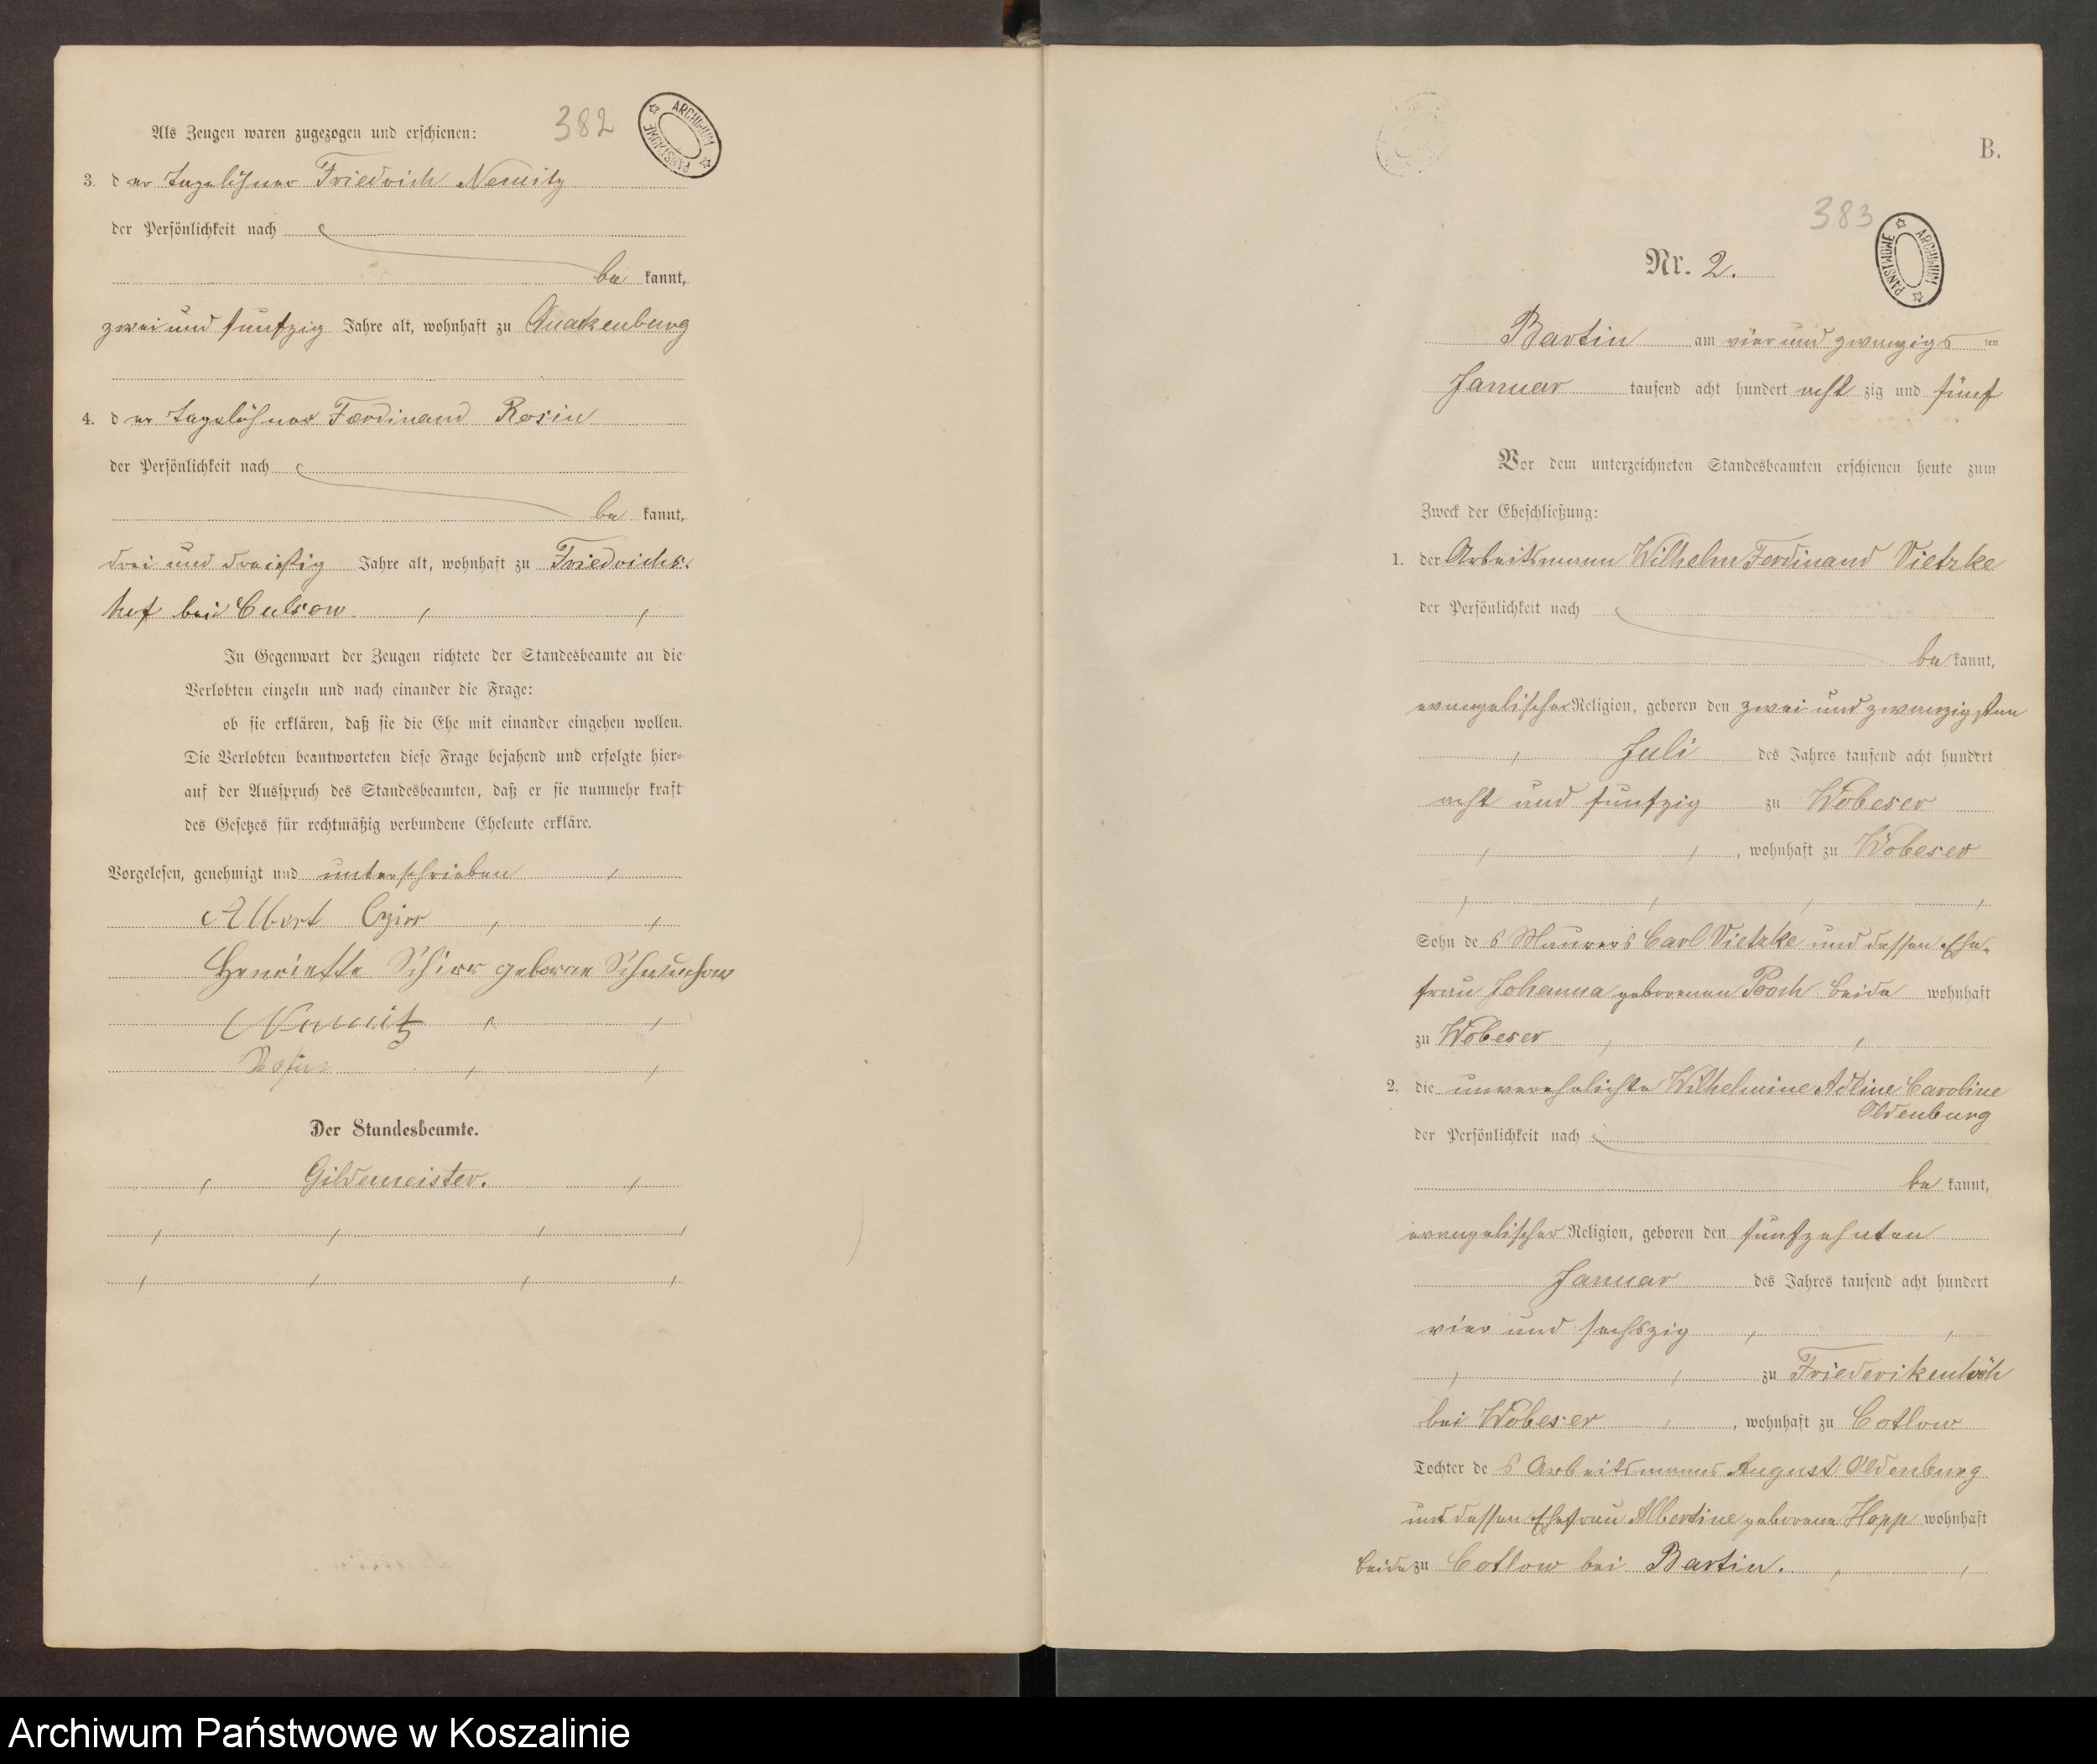 382
ARCHIWUM PAŃSTWOWE
Als Zeugen waren zugezogen und erschienen:
3. der Tagelöhner Friedrich Nemitz
der Persönlichkeit nach
bekannt,
zwei und funfzig Jahre alt, wohnhaft zu Quakenburg
4. der Tagelöhner Ferdinand Rosin
der Persönlichkeit nach
bekannt,
drei und dreißig Jahre alt, wohnhaft zu Friedrichs-
hof bei Culsow.
In Gegenwart der Zeugen richtete der Standesbeamte an die
Verlobten einzeln und nach einander die Frage:
ob sie erklären, daß sie die Ehe mit einander eingehen wollen.
Die Verlobten beantworteten diese Frage bejahend und erfolgte hier-
auf der Ausspruch des Standesbeamten, daß er sie nunmehr kraft
des Gesetzes für rechtmäßig verbundene Eheleute erkläre.
Vorgelesen, genehmigt und unterschrieben
Albert
Henriette geborne
Nemitz
Rosin
Der Standesbeamte.
Gildemeister.
B.
383
ARCHIWUM PAŃSTWOWE
Nr. 2.
Bartin am vier und zwanzigsten
Januar tausend acht hundert achtzig und fünf
Vor dem unterzeichneten Standesbeamten erschienen heute zum
Zweck der Eheschließung:
1. der Arbeitsmann Wilhelm Ferdinand Vietzke
der Persönlichkeit nach
bekannt,
evangelischer Religion, geboren den zwei und zwanzigsten
Juli des Jahres tausend acht hundert
acht und funfzig zu Wobeser
, wohnhaft zu Wobeser
Sohn des Maurers Carl Vietzke und dessen Ehe-
frau Johanna geborenen Pooch beide wohnhaft
zu Wobeser
2. die unverehelichte Wilhelmine Adline Caroline
Oldenburg
der Persönlichkeit nach
bekannt,
evangelischer Religion, geboren den funfzehnten
Januar des Jahres tausend acht hundert
vier und sechszig
zu
bei Wobeser, wohnhaft zu Cotlow
Tochter des Arbeitsmanns August Oldenburg
und dessen Ehefrau Albertine geborene Hopp wohnhaft
beide zu Cotlow bei Bartin.
Archiwum Państwowe w Koszalinie